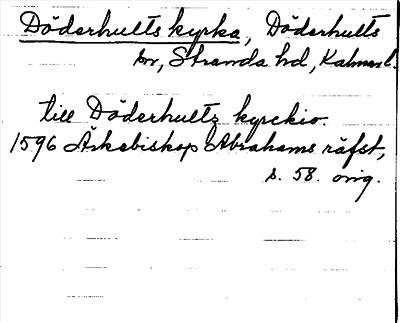 Döderhults kyrka, Döderhults
sn, Stranda hd, Kalmar l.
till Döderhults kyrckio.
1596 Ärkebiskop Abrahams räfst,
s. 58. orig.